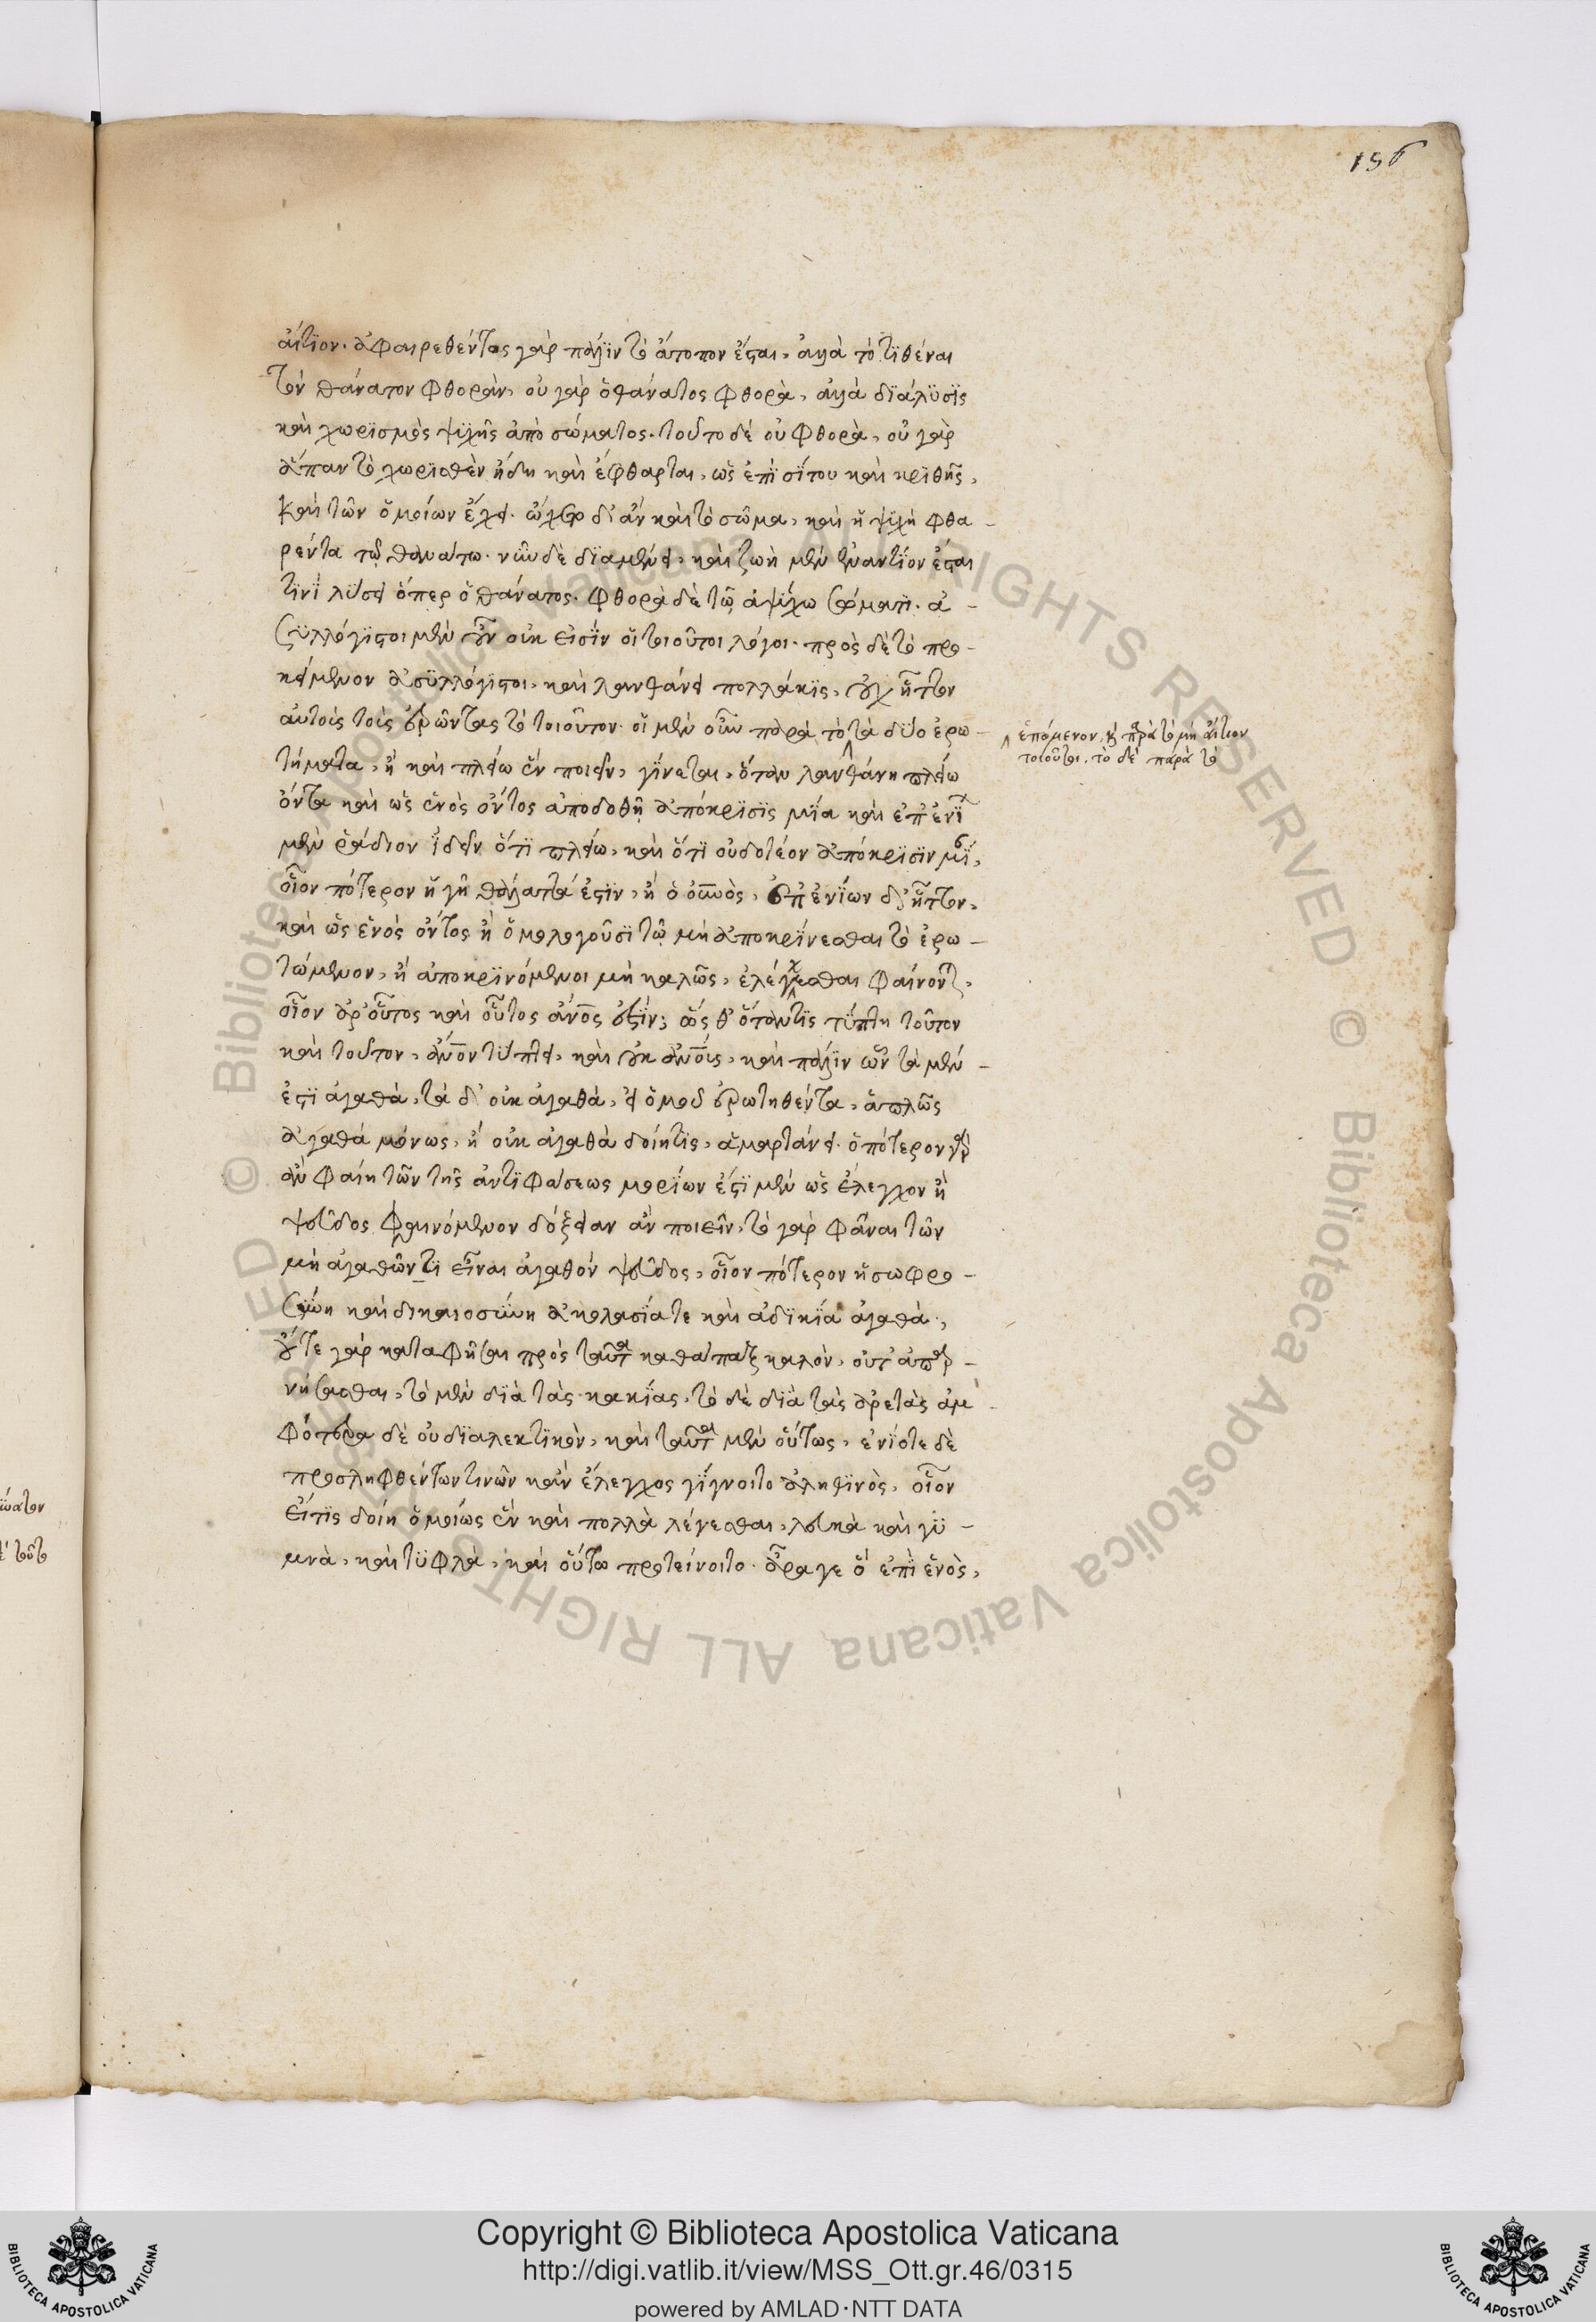 156
αἴτϊον. ἀφαιρεθέντος γὰρ πάλϊν τὸ ἄτοπον ἔςαι, ἀλλὰ τὸ τϊθέναι
τὸν θάνατον φθορὰν, οὐ γὰρ ὁ θάνατος φθορὰ, ἀλλὰ δϊάλϋσϊς
καὶ χωρϊσμὸς ψϋχῆς ἀπὸ σώματος. τοῦτο δὲ οὐ φθορὰ, οὐ γὰρ
ἅπαν τὸ χωρϊσθὲν ἤδη καὶ ἔφθαρται, ὡς ἐπὶ σίτου καὶ κρϊθῆς,
καὶ τῶν ὁμοίων ἔχει. ᾤχετο δ' ἂν καὶ τὸ σῶμα, καὶ ἡ ψϋχὴ φθα-
ρέντα τῷ θανάτω. νῦν δὲ δϊαμένει, καὶ ζωὴ μὲν ἐναντίον ἔςαι
τϊνὶ λύσει ὅπερ ὁ θάνατος. φθορὰ δὲ τῷ ἀψύχω σώματϊ. ἀ-
σϋλλόγϊςοι μὲν οὖν οὐκ εἰσὶν οἱ τοιοῦτοι λόγοι. πρὸς δὲ τὸ προ-
κείμενον ἀσϋλλόγϊςοι, καὶ λανθάνει πολλάκϊς, οὐχ ἧττον
αὐτοὺς τοὺς ἐρῶντας τὸ τοιοῦτον. οἱ μὲν οὖν παρὰ τὸ τὰ δύο ἐρω-
ἑπόμενον, καὶ παρὰ τὸ μὴ αἴτιον
τοιοῦτοι. τὸ δὲ παρὰ τὸ
τήματα, ἢ καὶ πλείω ἓν ποιεῖν, γίνεται, ὅταν λανθάνη πλείω
ὄντα καὶ ὡς ἑνὸς ὄντος ἀποδοθῇ ἀπόκρϊσϊς μία καὶ ἐπ' ἐνΐ
μὲν ῥάδιον ἰδεῖν ὅτϊ πλείω, καὶ ὅτϊ οὐ δοτέον ἀπόκρϊσϊν μΐ,
οἷον πότερον ἡ γῆ θάλαττά ἐςϊν, ἢ ὁ οὐνὸς, ἐπ' ἐνίων δ' ἧττον,
καὶ ὡς ἑνὸς ὄντος ἢ ὁμολογοῦσϊ τῷ μὴ ἀποκρίνεσθαι τὸ ἐρω-
τώμενον, ἢ ἀποκρϊνόμενοι μὴ καλῶς, ἐλέγχεσθαι φαίνοντ,
οἷον ἆρ' οὗτος καὶ οὗτος ἄνος ἐςΐν; ὥς θ' ὅταν τϊς τύπτη τοῦτον
καὶ τοῦτον, ἄνον τύπτει, καὶ οὐκ ἄνοϊς, καὶ πάλϊν ὧν τὰ μὲν
ἐςϊ ἀγαθὰ, τὰ δ' οὐκ ἀγαθὰ, εἰ ὁμοῦ ἐρωτηθέντα, ἁπλῶς
ἀγαθὰ μόνως, ἢ οὐκ ἀγαθὰ δοίη τϊς, ἁμαρτάνει. ὁπότερον γὰρ
ἂν φαίη τῶν τῆς ἀντϊφάσεως μορίων ἔςϊ μὲν ὡς ἔλεγχον ἢ
ψεῦδος φαινόμενον δόξειαν ἂν ποιεῖν, τὸ γὰρ φάναι τῶν
μὴ ἀγαθῶν τϊ εἶναι ἀγαθὸν ψεῦδος, οἷον πότερον ἡ σωφρο-
σύνη καὶ δικαιοσύνη ἀκολασία τε καὶ ἀδϊκΐα ἀγαθὰ,
οὔτε γὰρ καταφῆσαι πρὸς ταῦτα καθάπαξ καλὸν, οὔτ' ἀπαρ-
νήσασθαι, τὸ μὲν δϊὰ τὰς κακΐας, τὸ δὲ δϊὰ τὰς ἀρετὰς ἀμ
φότερα δὲ οὐ δϊαλεκτϊκὸν, καὶ ταῦτα μὲν οὕτως, ἐνίοτε δὲ
προσληφθέντων τινῶν κἂν ἔλεγχος γΐγνοιτο ἀληθϊνὸς, οἷον
εἴ τϊς δοίη ὁμοίως ἓν καὶ πολλὰ λέγεσθαι, λευκὰ καὶ γϋ-
μνὰ, καὶ τϋφλὰ, καὶ οὕτω προτείνοιτο. ἆρα γε ὃ ἐπὶ ἑνὸς,
ϊώατον
Copyright © Biblioteca Apostolica Vaticana
http://digi.vatlib.it/view/MSS_Ott.gr.46/0315
powered by AMLAD·NTT DATA
BIBLIOTECA APOSTOLICA VATICANA
BIBLIOTECA APOSTOLICA VATICANA
© Biblioteca Apostolica Vaticana ALL RIGHTS RESERVED © Biblioteca Apostolica Vaticana ALL RIGHTS RESERVED